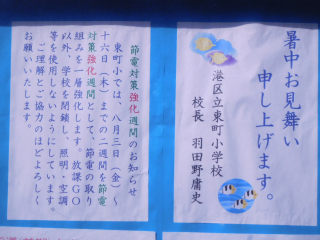 暑中お見舞い
申し上げます。
港区立東町小学校
校長 羽田野庸史
節電対策強化週間のお知らせ
東町小では、八月三日(金)～
十六日(木)までの二週間を節電
対策強化週間として、節電の取り
組みを一層強化します。放課GO
以外、学校を閉鎖し、照明・空調
等を使用しないようにしています。
ご理解とご協力のほどよろしく
お願いいたします。